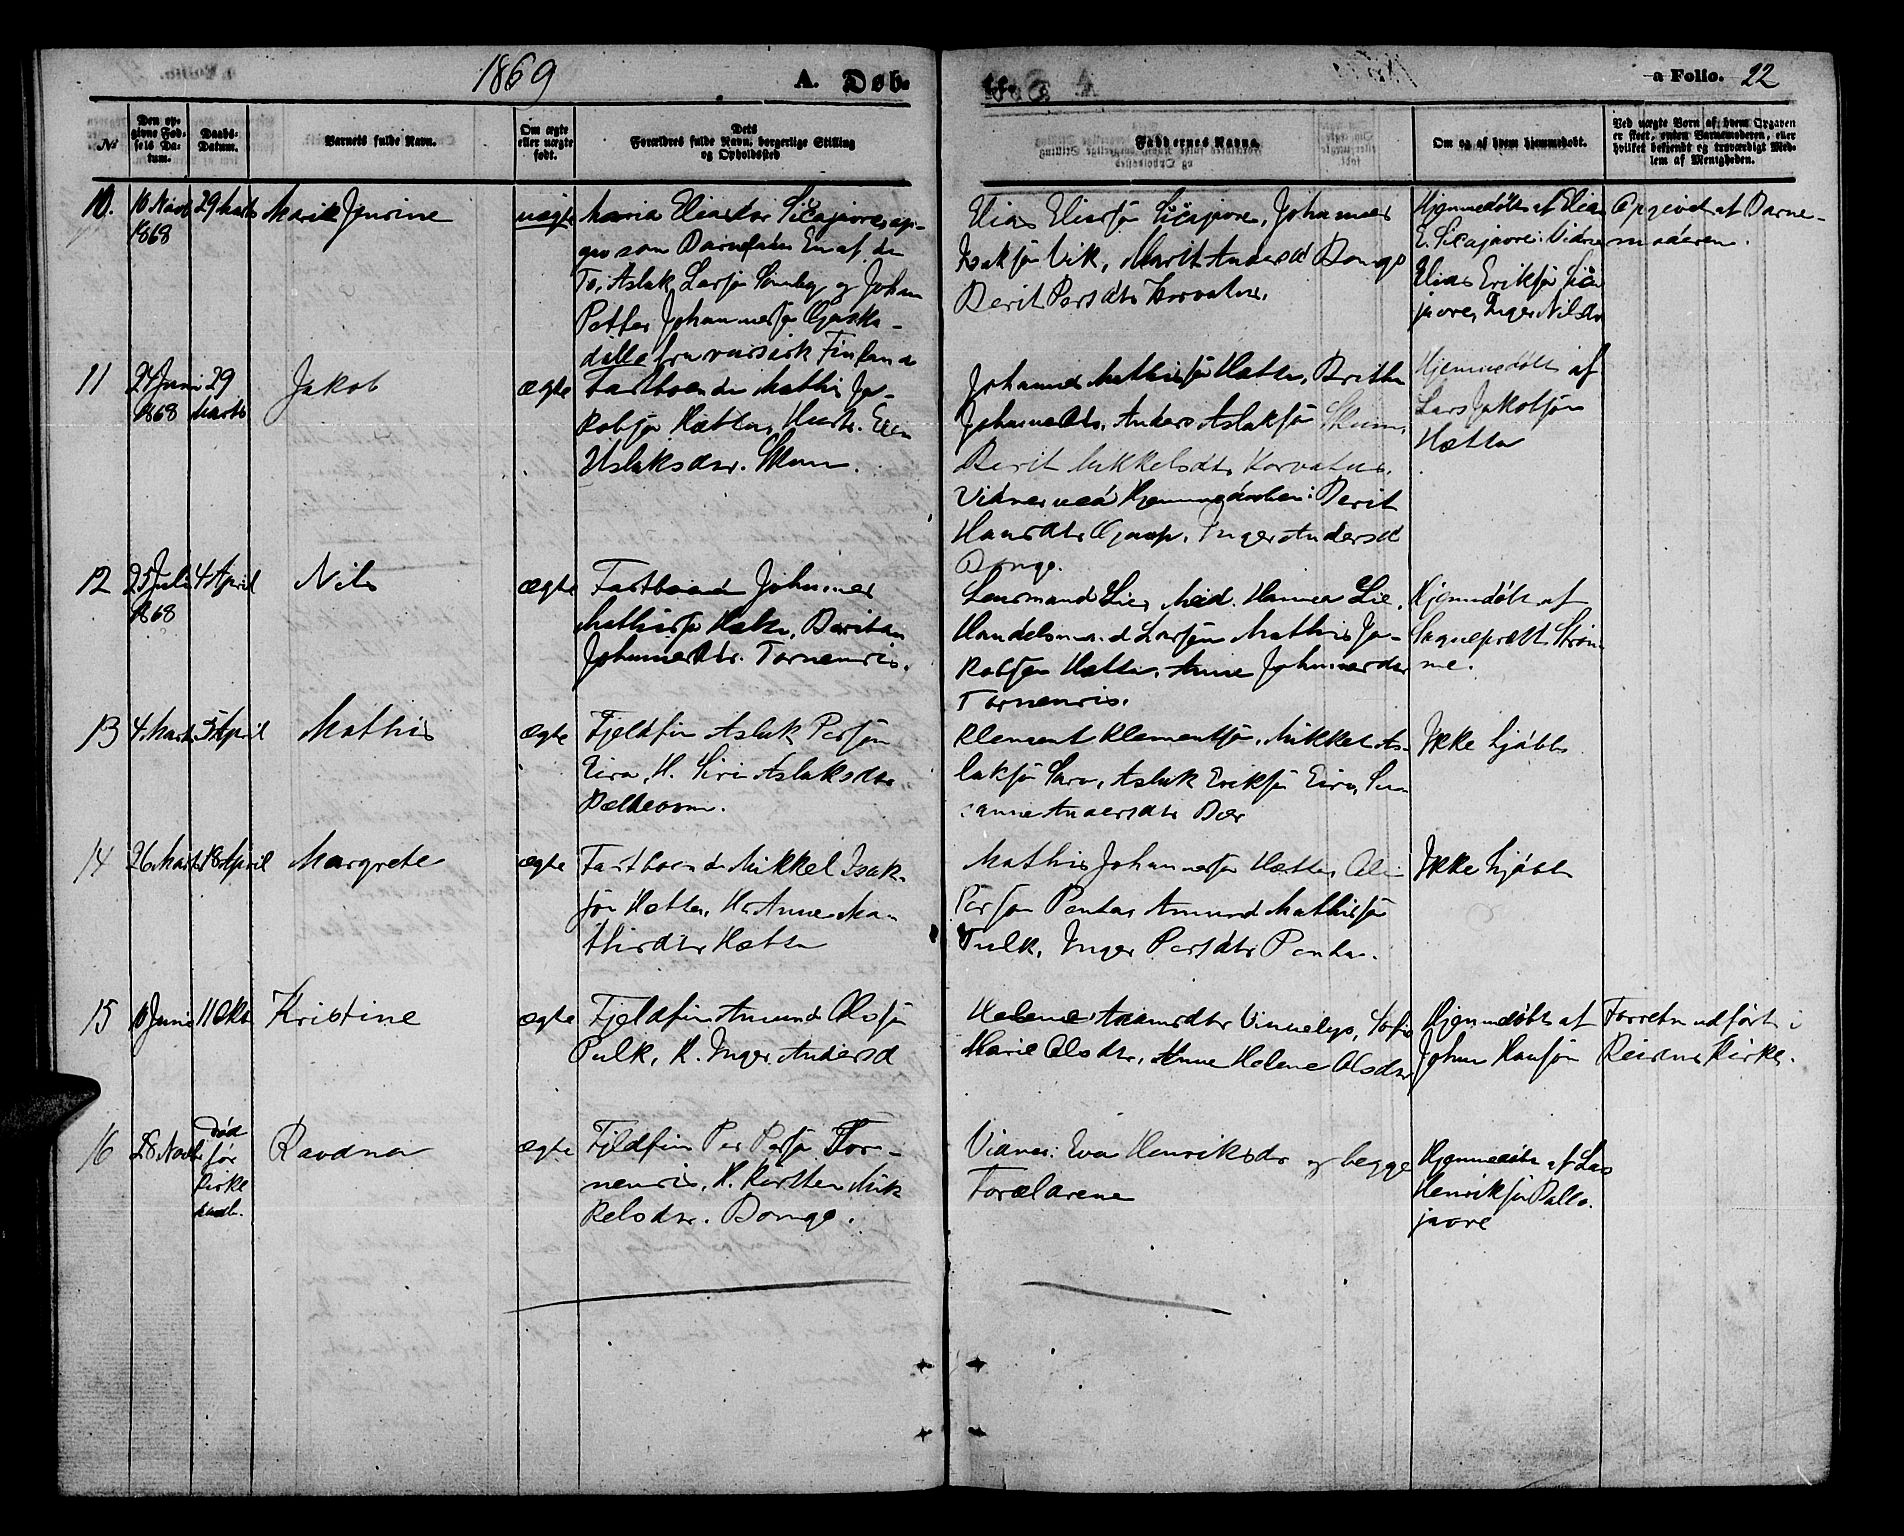 1869
A. Døb-
a Folio. 22
No
Den op-
givne Fød-
sels Da-
tum.
Daabs-
Datum.
Barnets fulde Navn.
Om ægte
eller uægte
født.
Dets
Forældres fulde Navn, borgerlige Stilling
og Opholdssted
Faddernes Navne.
Om og af hvem hjemmedøbt.
Ved uægte Børn af hvem Opgaven
er skeet, enten Barnemoderen, eller
hvilket bekjendt og troværdigt Med-
lem af Menigheden.
10.
10 Novb
1868
29 Marts
Marie
uægte
Maria Eliasdtr Sicajavre, op-
giv som Barnefader En af de
To, Aslak Larsøn og Johan
Petter Johannessøn
fra russisk Finland
Elias Eliassøn Sicajavre, Johannes
Isaksøn Vik, Marit Andersd Bongo
Berit Persdtr Korvatus.
Hjemmedøbt af Elias
E. Sicajavre. Vidne
Elias Eriksøn Sica
javre, Inger Nilsdtr
Opgivet af Barne-
moderen.
11
24 Juni
1868
29
Marts
Jakob
ægte
Fastboende Mathis Ja-
kobsøn Hætta, Hustr. Elen
Aslaksdtr. Skum.
Johannes Mathissøn Hætta, Britha
Johannesdtr, Anders Aslaksøn Skum,
Berit Mikkelsdtr Korvatus.
Vidner ved Hjemmedaaben: Berit
Hansdtr Gaup, Inger Andersd
Bongo.
Hjemmedøbt af
Lars Jakobsøn
Hætta
12
25 Juli
1868
4 April
Nils
ægte
Fastboend Johannes
Mathissøn Hætta, Beritha
Johannesdtr. Tornensis.
Lensmand Lie, Mad. Hanna Lie,
Handelsmand Larsøn Mathis Ja-
kobsøn Hætta, Anne Johannesdtr
Tornensis.
Hjemdøbt af
Sognepræst Strøm-
me.
13
4 Marts
5 April
Mathis
ægte
Fjeldfin Aslak Persøn
Eira, H. Siri Aslaksdtr
Bælteorm.
Klement Klementsøn, Mikkel As-
laksøn Sara, Aslak Eriksøn Eira, Su-
sanne Andersdtr Bær
Ikke hjdbt
14
26 Marts
18 April
Margrete
ægte
Fastboende Mikkel Isak-
søn Hætta, H. Anne Ma-
thisdtr Hætta
Mathis Johannessøn Hætta, Ole
Persøn Pentha Amund Mathissøn
Pulk, Inger Persdtr Pentha.
Ikke hjdbt
15
10 Juni
11 Okt
Kristine
ægte
Fjeldfin Amund Olsøn
Pulk, H. Inger Andersd
Helene Adamsdtr Vinnelys, Sofie
Marie Olsdtr, Anne Helene Olsdtr
Hjemmedøbt af
Johan Hansøn
Forretn udført i
Reisens Kirke.
16
28 Novb
Død
før
kirke
Ravdna
ægte
Fjeldfin Per Persøn Tor-
nensis, H. Kirsten Mik
kelsdtr. Bongo.
Vidner: Eva Henriksdtr og begge
Forældrene
Hjemmedøbt af Lars
Henriksøn Palo-
javre